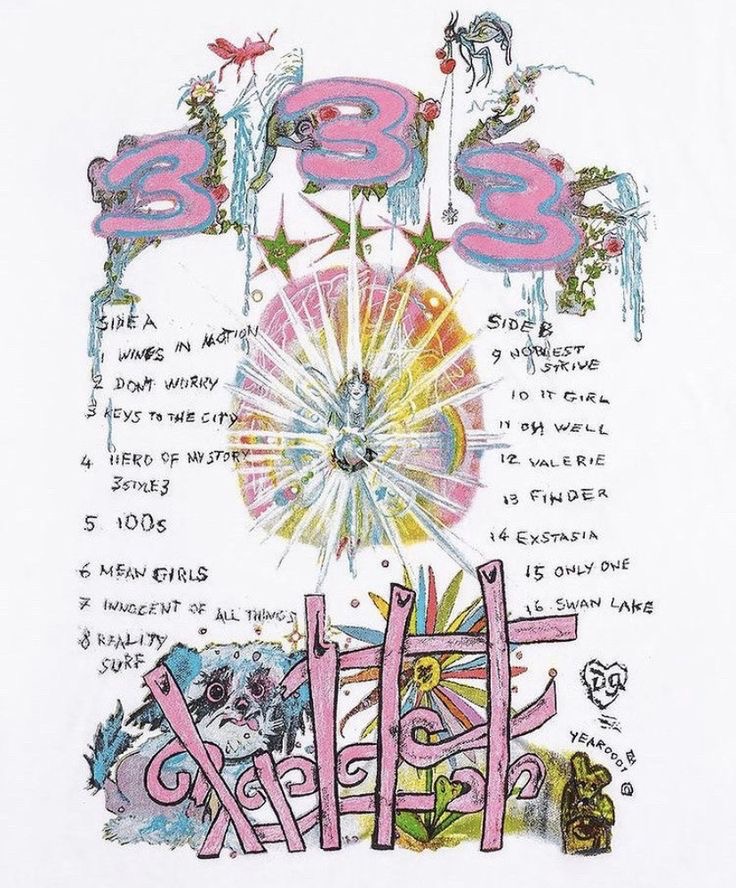 333
SIDE A
1 WINGS IN MOTION
2 DON'T WORRY
3 KEYS TO THE CITY
4 HERO OF MY STORY
3STYLE3
5 100s
6 MEAN GIRLS
7 INNOCENT OF ALL THINGS
8 REALITY
SURF
SIDE B
9 NOBLEST
STRIVE
10 IT GIRL
11 OH WELL
12 VALERIE
13 FINDER
14 EXSTASIA
15 ONLY ONE
16 SWAN LAKE
DG
YEAR0001